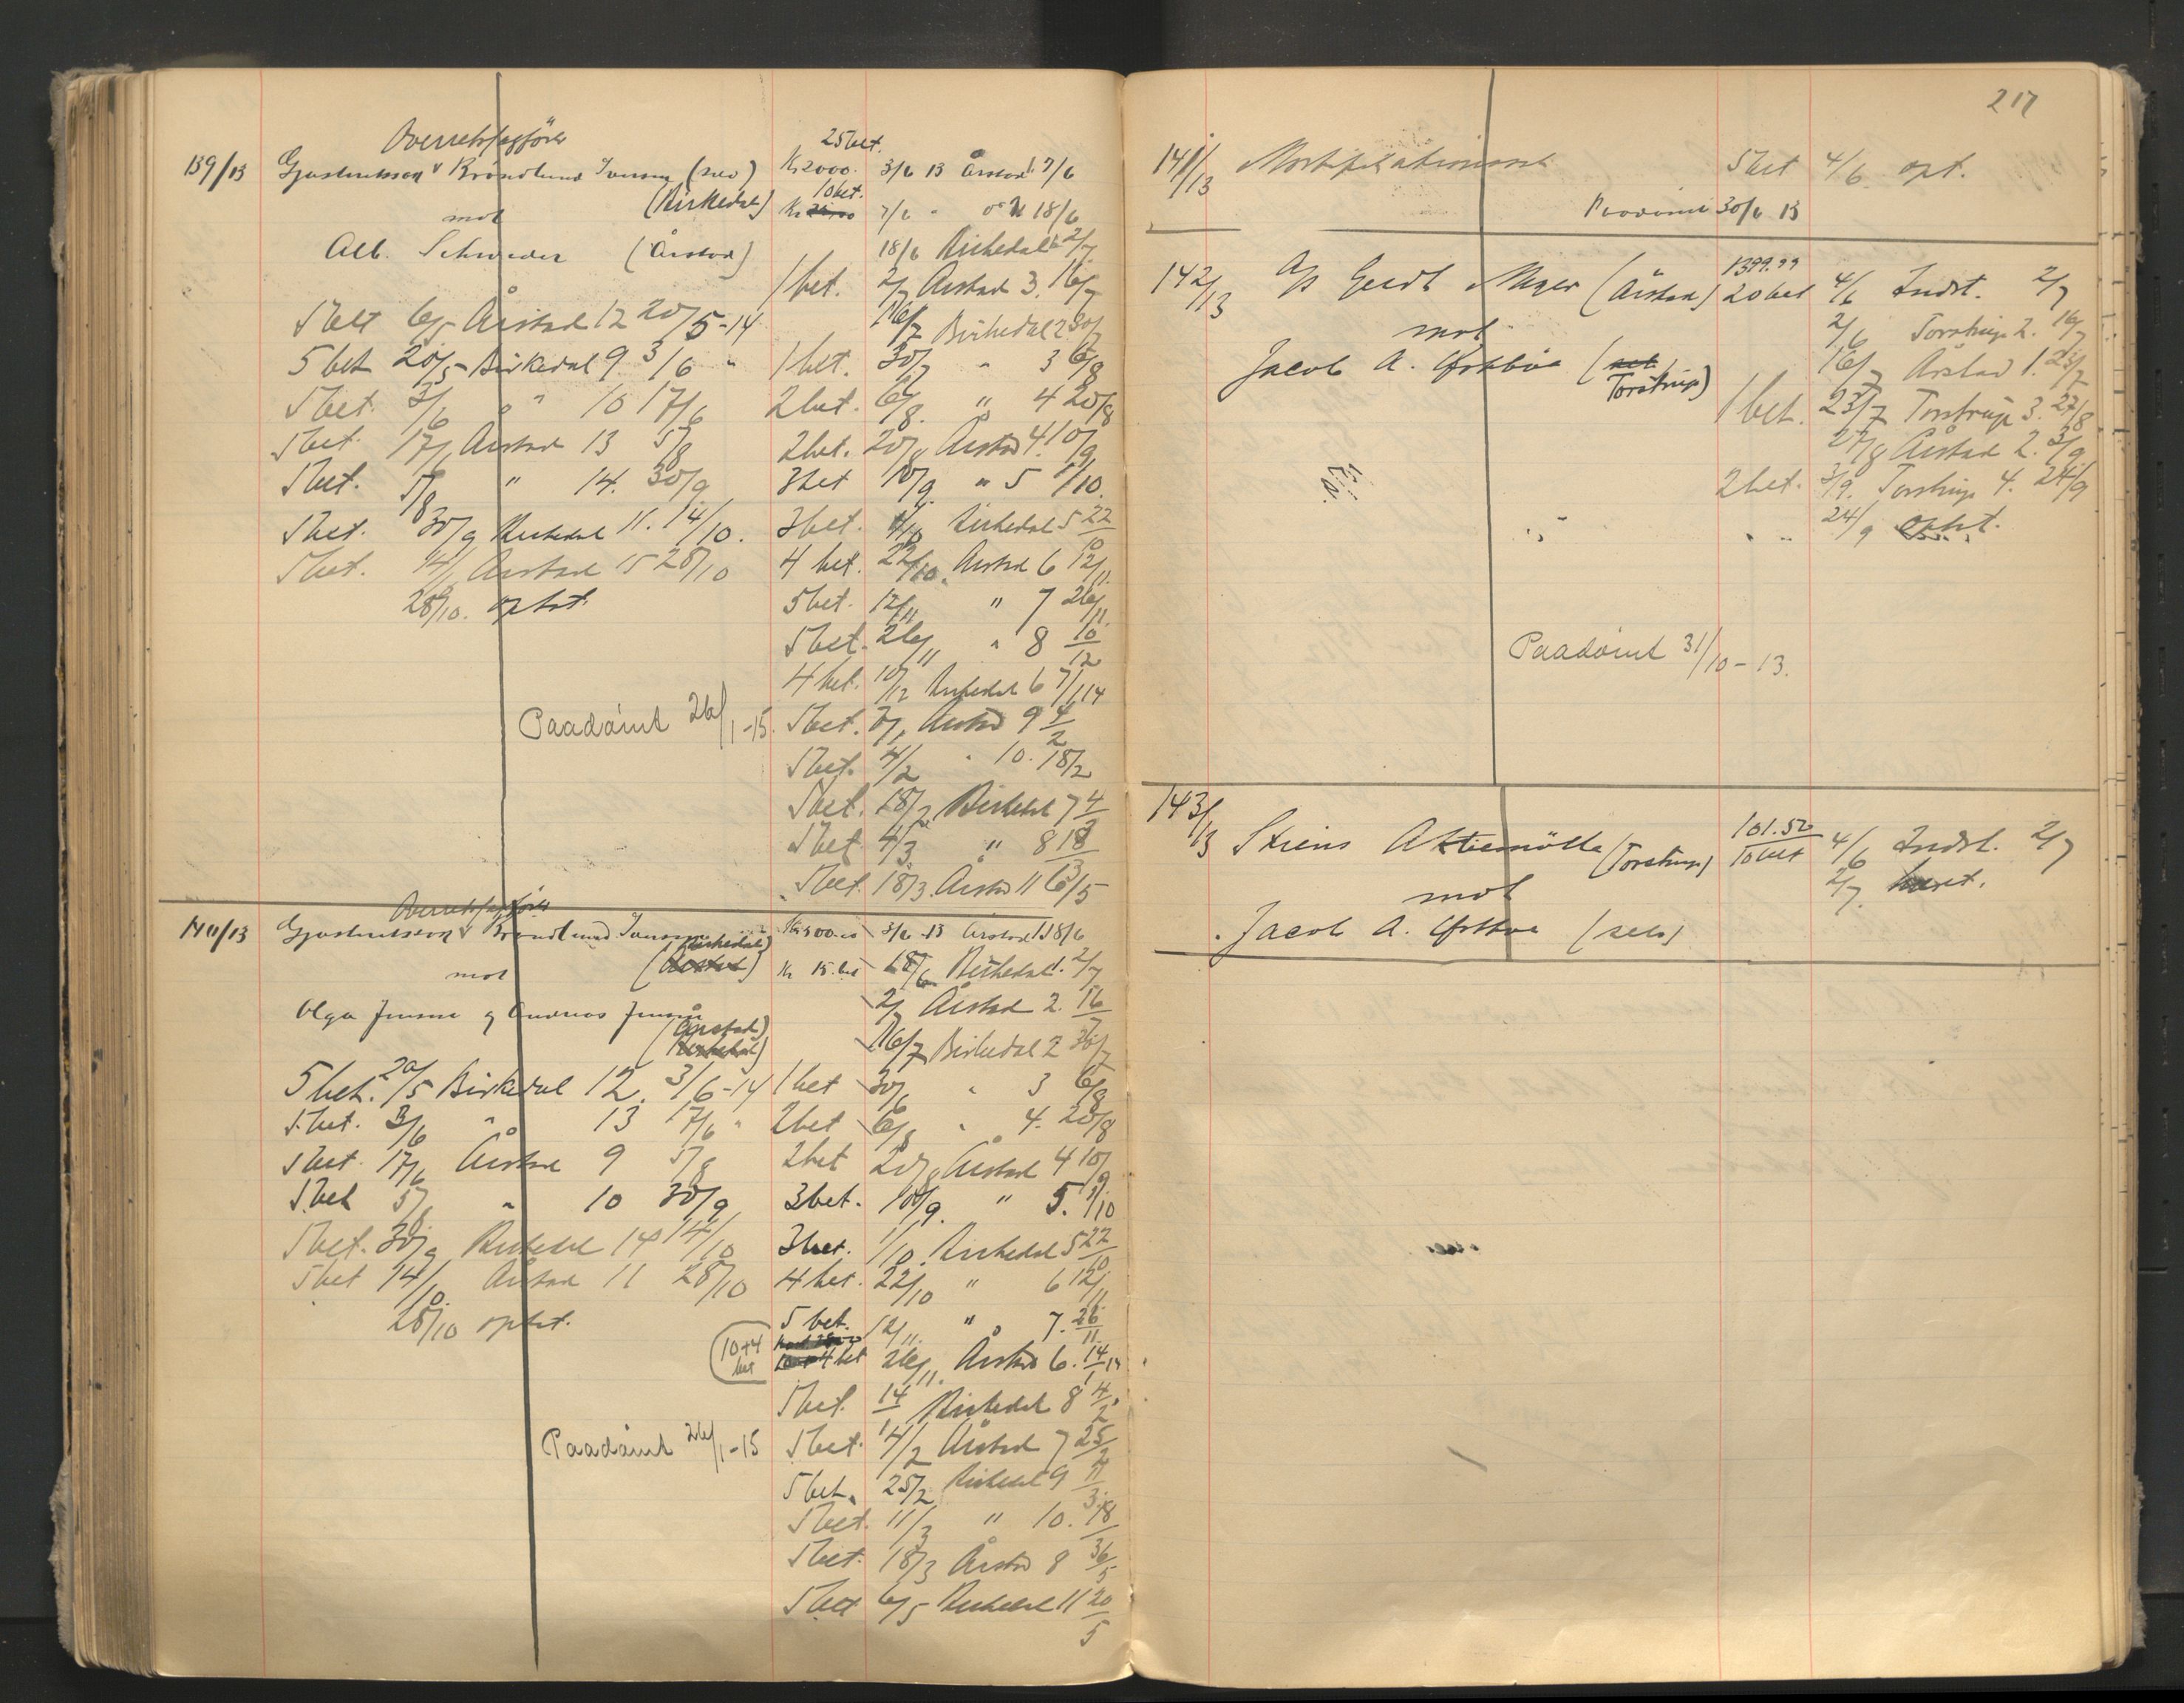 Overretssagfører
139/13
mot (Birkedal)
Alb. Schrøder (Årstad)
5 bet 6/5 Årstad 12 20/5-14
5 bet 20/5 Birkedal 9. 3/6 "
5 bet. 3/6 " 10 17/6
5 bet. 17/6 Årstad 13 5/8
5 bet. 5/8 " 14. 30/9
5 bet. 30/9 Birkedal 11. 14/10.
5 bet. 14/10 Årstad 15 28/10
28/10. optat.
Paadømt 26/1-15.
25 bet.
Kr 2000. 3/6 13 Årstad 1. 7/6
10 bet.
18/6 Birkedal 2/7
1 bet. 2/7 Årstad 3. 16/7
16/7 Birkedal 2 30/7
1 bet. 30/7 " 3 6/8
2 bet. 6/8. " 4 20/8
2 bet. 20/8 Årstad 4. 10/9
3 bet 10/9. " 5 1/10.
3 bet. 1/10 Birkedal 5 22/10
4 bet. 22/10. Årstad 6 12/11
5 bet. 12/11 " 7 26/11.
5 bet. 26/11 " 8 10/12
4 bet. 10/12 Birkedal 6 7/1 14
5 bet. 7/1 Årstad 9 4/2
5 bet. 4/2 " 10. 18/2
5 bet. 18/2 Birkedal 7 4/3
5 bet 4/3 " 8 18/3
5 bet. 18/3. Årstad 11 6/5
Overretssagfører
140/13
mot (Birkedal)
Olga Jensen og Andreas Jensen
(Årstad)
5 bet. 20/5 Birkedal 12. 3/6-14
5 bet. 3/6 " 13 17/6 "
5 bet. 17/6 Årstad 9 5/8
5 bet 5/8 " 10 30/9
5 bet. 30/9 Birkedal 14 14/10
5 bet 14/10. Årstad 11 28/10
28/10 optat.
Paadømt 26/1-15
3/6 13 Årstad 1. 18/6
Kr 15. bet 18/6 Birkedal 1. 2/7
2/7 Årstad 2. 16/7
16/7 Birkedal 2 30/7
1 bet 30/7 " 3 6/8
2 bet 6/8 " 4. 20/8
2 bet 20/8 Årstad 4 10/9
3 bet. 10/9. " 5. 1/10
3 bet. 1/10. Birkedal 5 22/10
4 bet. 22/10 " 6 12/11
5 bet. 12/11. " 7. 26/11.
10+4 bet
4 bet 26/11. Årstad 6. 14/1 14
5 bet. 14/1 Birkedal 8 4/2
5 bet. 4/2 Årstad 7 25/2
5 bet. 25/2 Birkedal 9 11/3.
5 bet. 11/3 " 10. 18/3
5 bet. 18/3 Årstad 8
5 bet 6/5 Birkedal 11 20/5
217
141/13 Mortifikationssak 5 bet 4/6 opt.
Paadømt 30/6 13
142/13 A/S Gerdt Meyer (Årstad) 20 bet 4/6 Indst. 2/7
mot
Jacob A.
Torstrup)
Torstrup 2. 16/7
16/7 Årstad 1. 23/7
1 bet. 23/7 Torstrup 3. 27/8
27/8 Årstad 2. 3/9
2 bet. 3/9. Torstrup 4. 24/9
24/9 optat.
Paadømt 31/10-13.
143/13 Skiens Aktiemølle (Torstrup) 101.50 4/6 Indst. 2/7
10 bet 2/7.
mot
Jacob A. (selv)